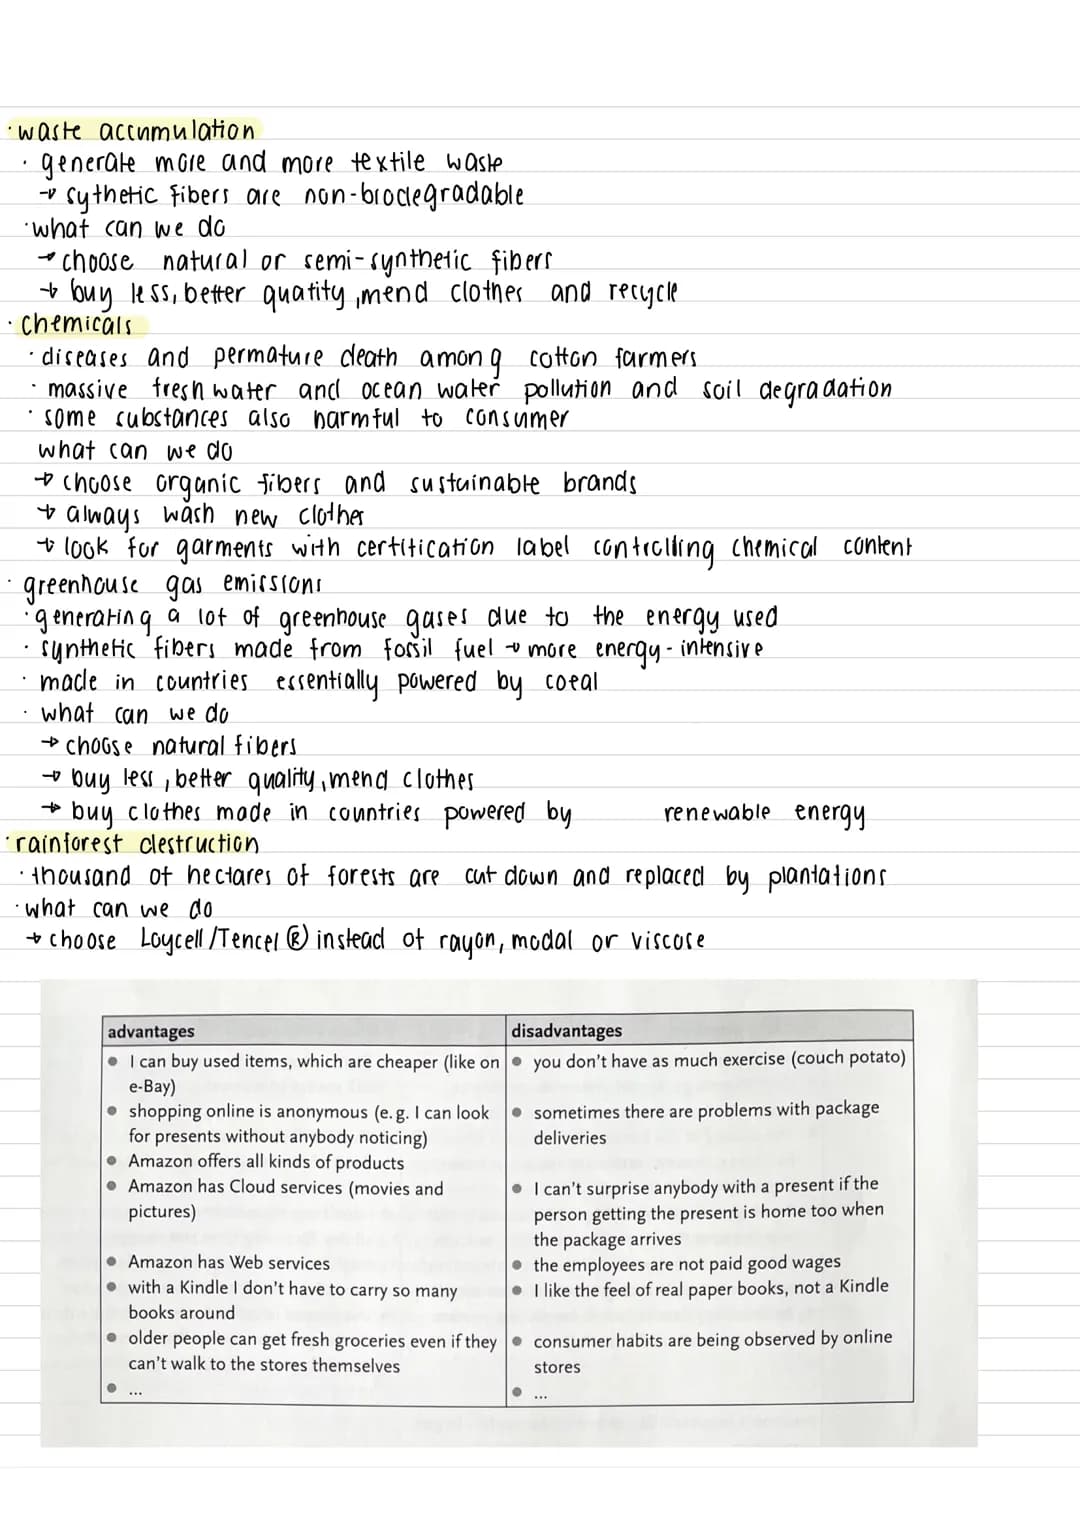 ·waste accumulation
· generate more and more textile waste
→ sythetic fibers are non-biodegradable
·what can we do
→ choose natural or semi-synthetic fibers
→ buy less, better quatity, mend clothes and recycle
· chemicals
· diseases and permature death among cotton farmers
· massive fresh water and ocean water pollution and soil degradation
· some substances also harmful to consumer
what can we do
→ choose organic fibers and sustainable brands
→ always wash new clothes
→ look for garments with certification label controlling chemical content
· greenhouse gas emissions
· generating a lot of greenhouse gases due to the energy used
· synthetic fibers made from fossil fuel → more energy-intensive
· made in countries essentially powered by coeal
· what can we do
→ choose natural fibers
→ buy less, better quality, mend clothes
→ buy clothes made in countries powered by renewable energy
· rainforest destruction
· thousand of hectares of forests are cut down and replaced by plantations
· what can we do
→ choose Loycell/Tencel ® instead of rayon, modal or viscose
advantages
• I can buy used items, which are cheaper (like on
e-Bay)
• shopping online is anonymous (e. g. I can look
for presents without anybody noticing)
• Amazon offers all kinds of products
• Amazon has Cloud services (movies and
pictures)
• Amazon has Web services
• with a Kindle I don't have to carry so many
books around
• older people can get fresh groceries even if they
can't walk to the stores themselves
• ...
disadvantages
• you don't have as much exercise (couch potato)
• sometimes there are problems with package
deliveries
• I can't surprise anybody with a present if the
person getting the present is home too when
the package arrives
• the employees are not paid good wages
• I like the feel of real paper books, not a Kindle
• consumer habits are being observed by online
stores
• ...